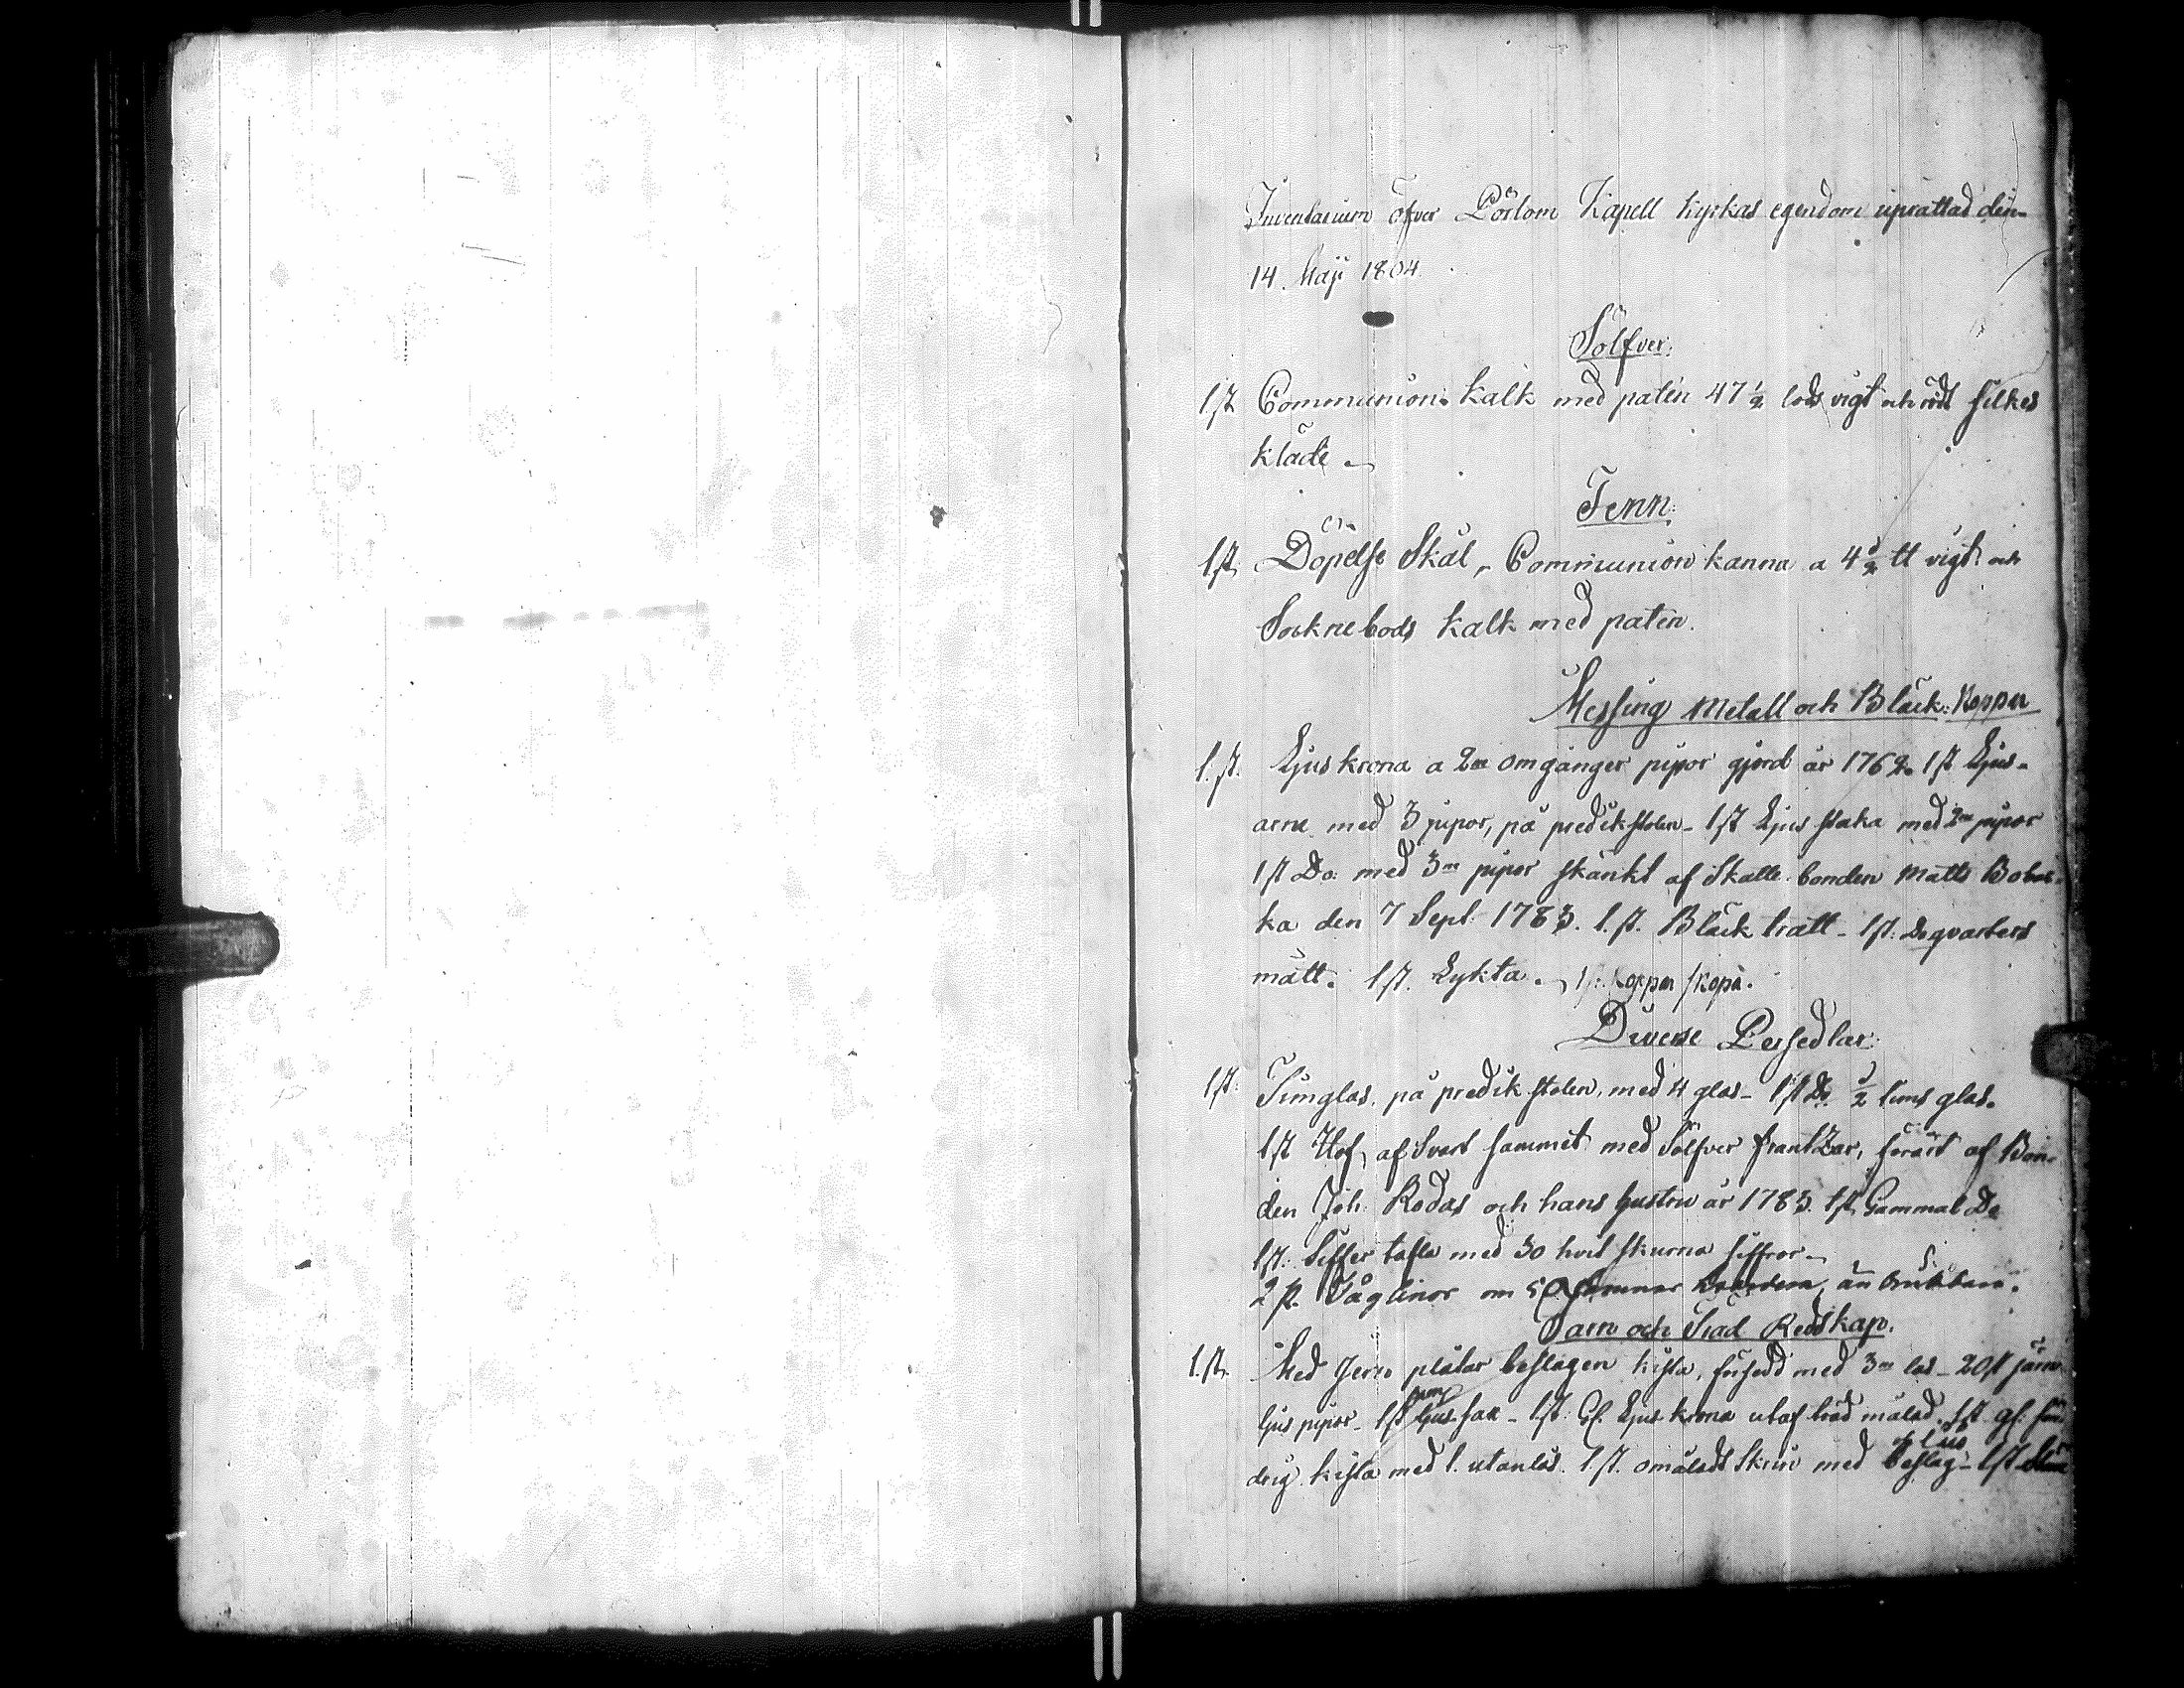 Inventarium öfver Pörtom Kapell Kyrkas egendom uprättad den
14. Maji 1804.
Sölfver:
1 st Communions Kalk med paten 47 1/2 lods vigt och rödt silkes
kläde.
Tenn:
1 st. Döpelse Skål, Communion kanna a 4 1/2 ℔ vigt och
Sockne bods Kalk med paten.
Messing Metall och Bläck: Koppar
1. st. Ljuskrona a 2ne omgånger pipor gjord år 1762. 1 st Ljus-
arm med 3 pipor, på predikstolen - 1 st Ljus staka med 2ne pipor
1 st Do: med 3ne pipor skänkt af Skatte bonden Matts
ka den 7 Sept: 1783. 1. st. Bläck tratt - 1 st: Do qvarters
mått. 1 st. Lykta. 1 st: koppar skopa.
Diverse Persedlar:
1 st: Timglas, på predik stolen, med 4 glas - 1 st Do. 1/2 tims glas.
1 st Håf, af Svart sammet med Sölfver frantzar, förärt af Bon-
den Joh: Rodas och hans hustru år 1783. 1 st, Gammal Do
1 st: Siffer tafla med 30 hvit skurna siffror.
2 st. Tåglinor om 50 famnar
Järn och Träd Redskap.
1. st. Med Jern plåtar beslagen kista, försedd med 3ne lås - 20 st järn
ljus pipor - 1 st ljus sax - 1 st: Gl. Ljus krona utaf träd målad. 1 st. gl:
drig kista med 1. utanlås. 1. st. omåladt Skrin med beslag - 1 st